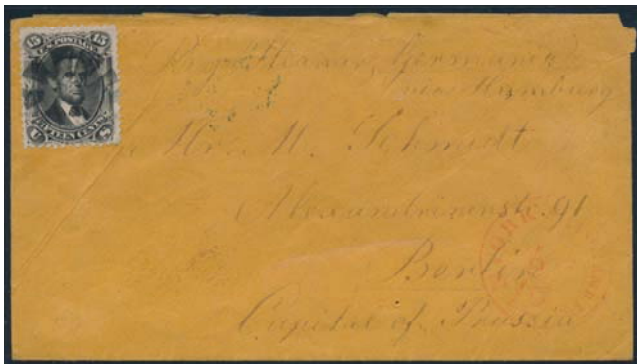 15 U.S. POSTAGE 15
FIFTEEN CENTS
U S
Steamer, Germania
via Hamburg
Hr. H. Schmidt
Alexandrinenstr. 91
Berlin
Capital of Prussia